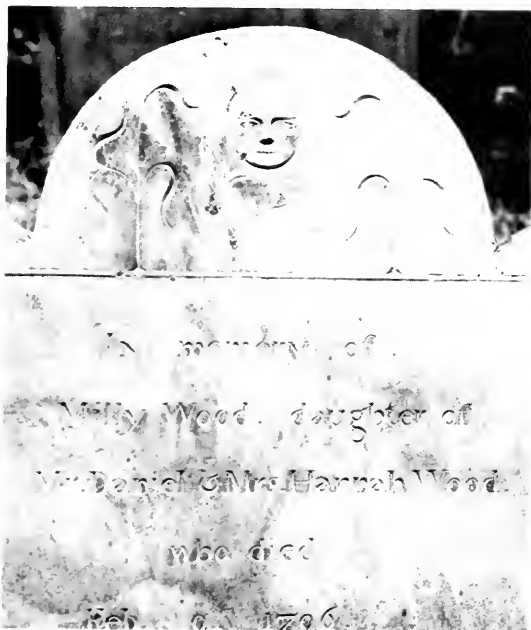 In memory of
Milly Wood, daughter of
Mr. Daniel & Mrs. Hannah Wood
who died
Feb. 1786